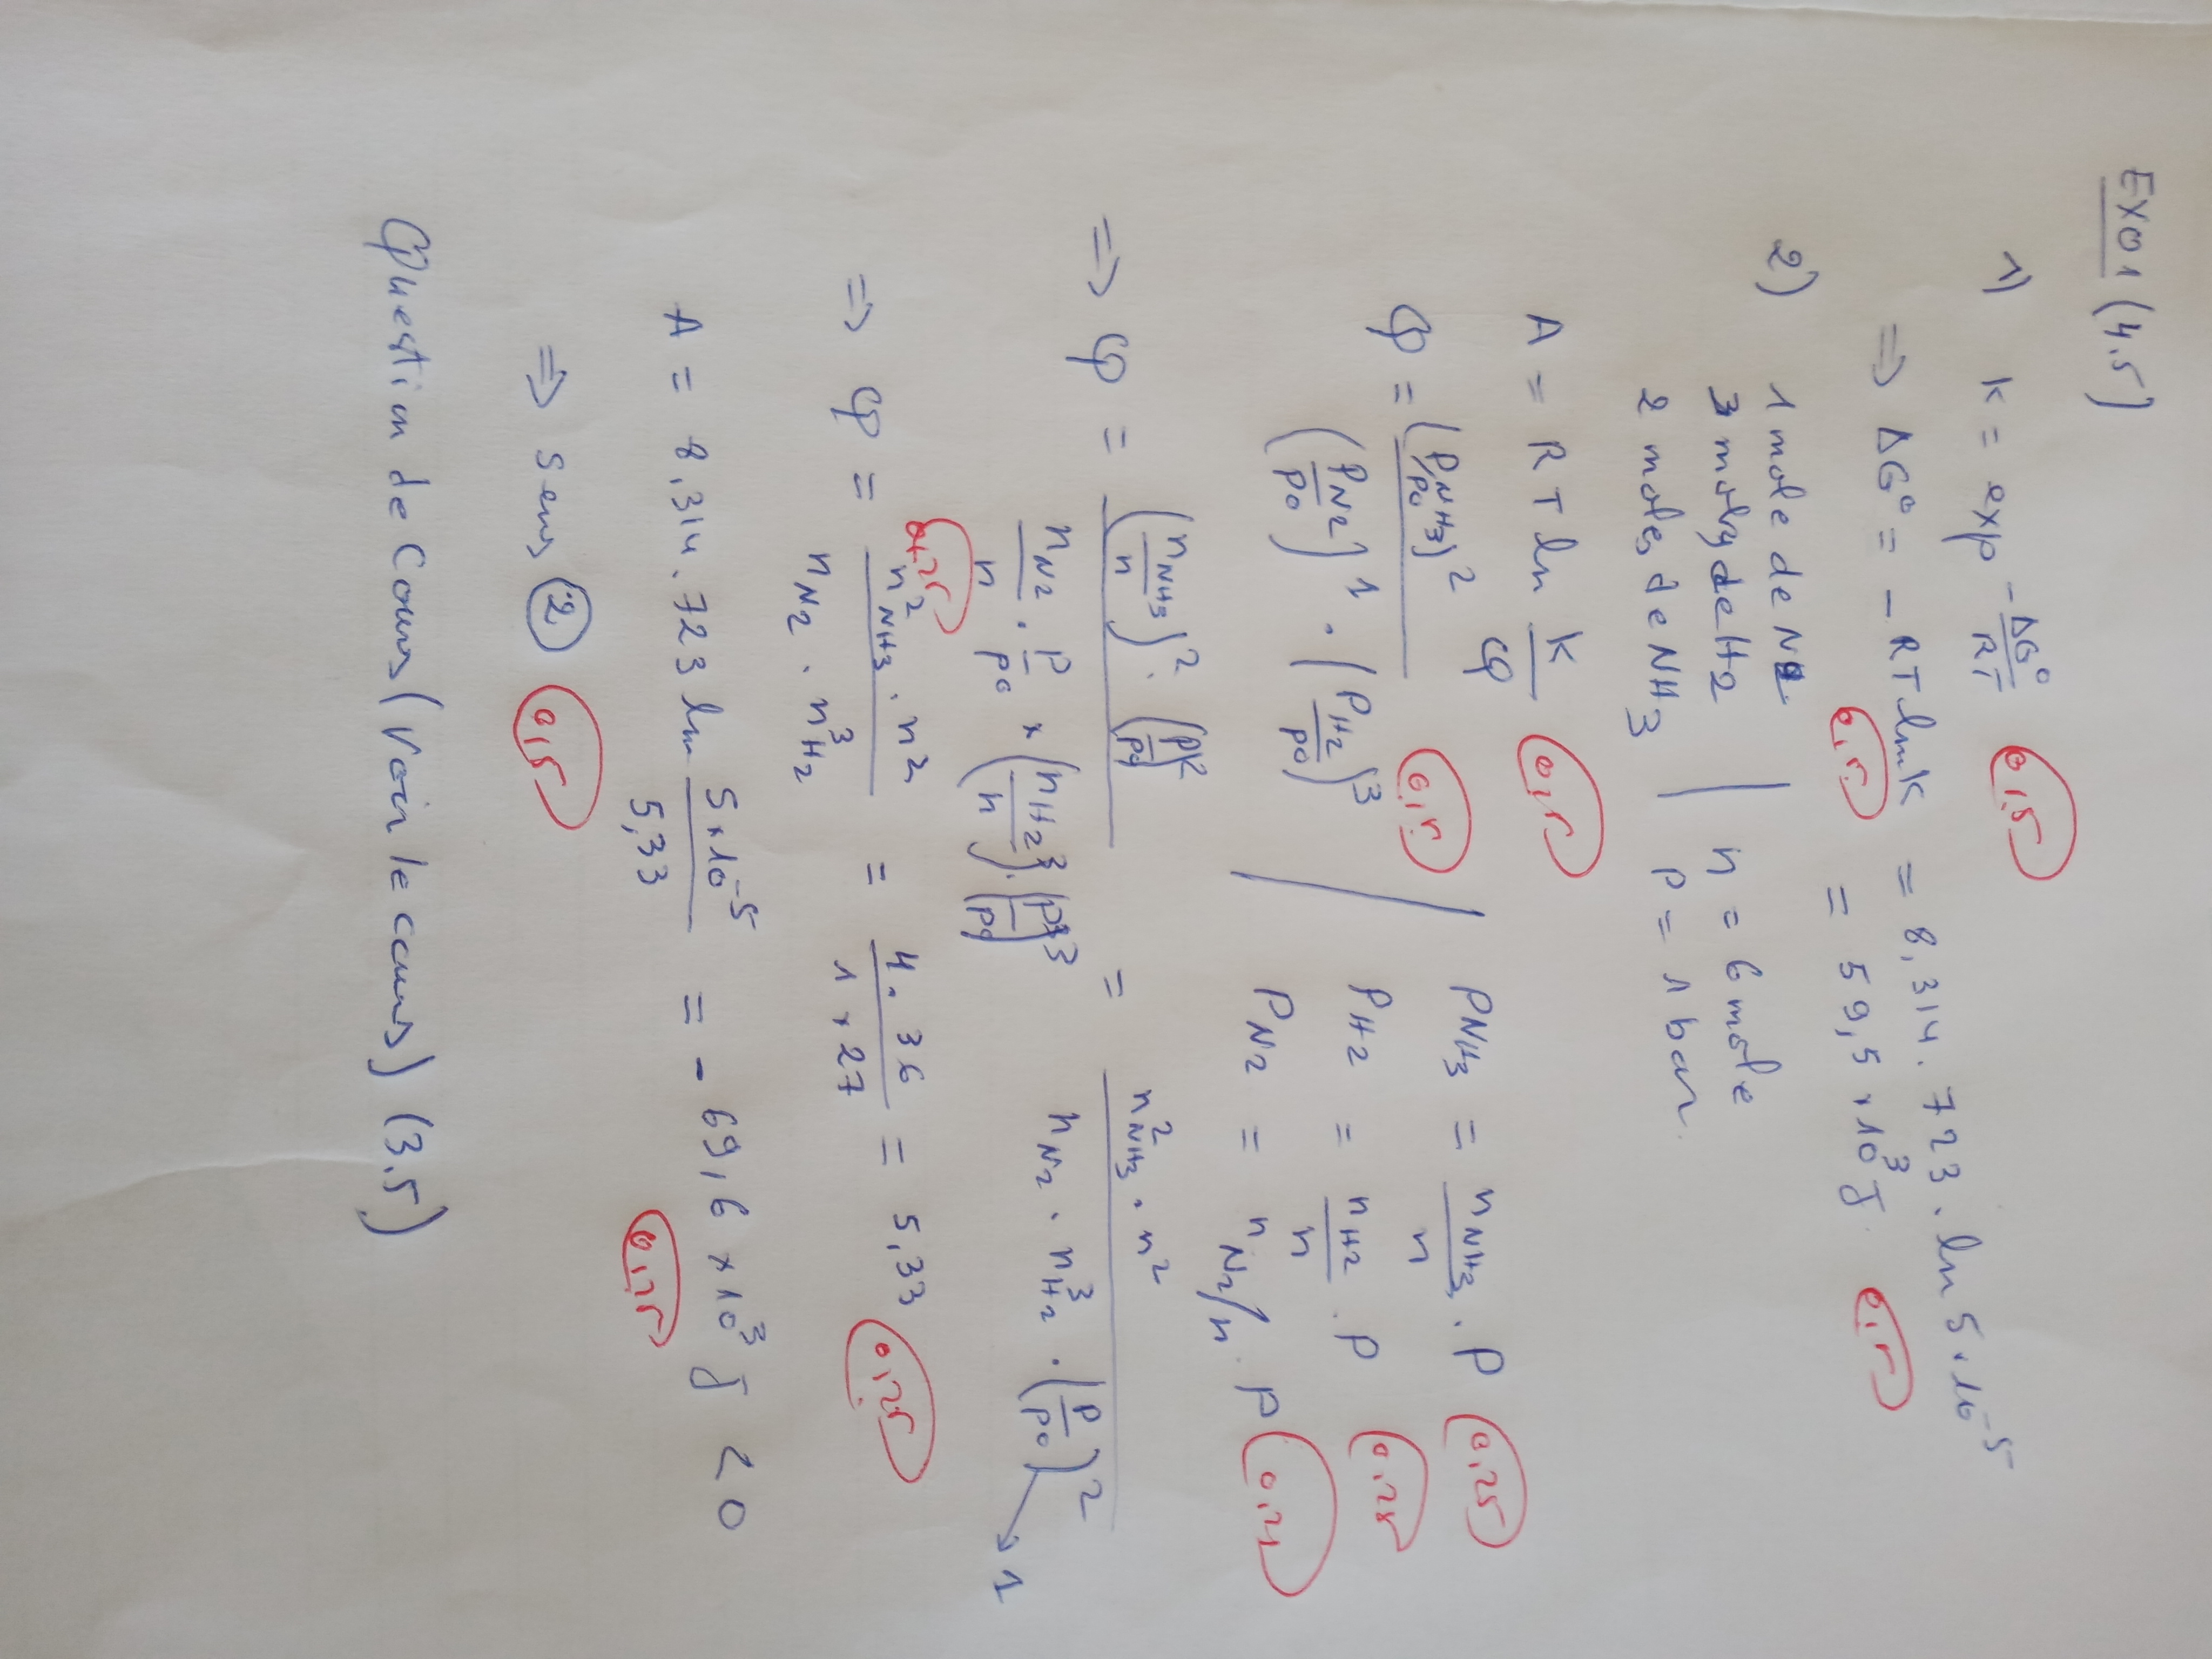 Exo1 (4.5)
1) K = exp -ΔG°/RT 0,5
⇒ ΔG° = - RT ln K = 8,314 . 723 . ln 5.10^-5
0,5 = 59,5 × 10^3 J. 0,5
2) 1 mole de N2
3 moles de H2 | n = 6 mole
2 moles de NH3 | P = 1 bar.
A = RT ln K/φ 0,5
φ = (P_NH3/P0)^2 / (P_N2/P0)^1 . (P_H2/P0)^3 0,5
P_NH3 = n_NH3/n . P 0,25
P_H2 = n_H2/n . P 0,25
P_N2 = n_N2/n . P 0,25
⇒ φ = (n_NH3/n)^2 . (P/P0)^2 / n_N2/n . P/P0 × (n_H2/n)^3 . (P/P0)^3 = n^2_NH3 . n^2 / n_N2 . n^3_H2 . (P/P0)^2 → 1
0,25
⇒ φ = n^2_NH3 . n^2 / n_N2 . n^3_H2 = 4 . 36 / 1 × 27 = 5,33 0,25
A = 8,314 . 723 ln 5×10^-5 / 5,33 = - 69,6 × 10^3 J < 0
⇒ sens 2 0,5
Question de Cours (Voir le cours) (3.5)